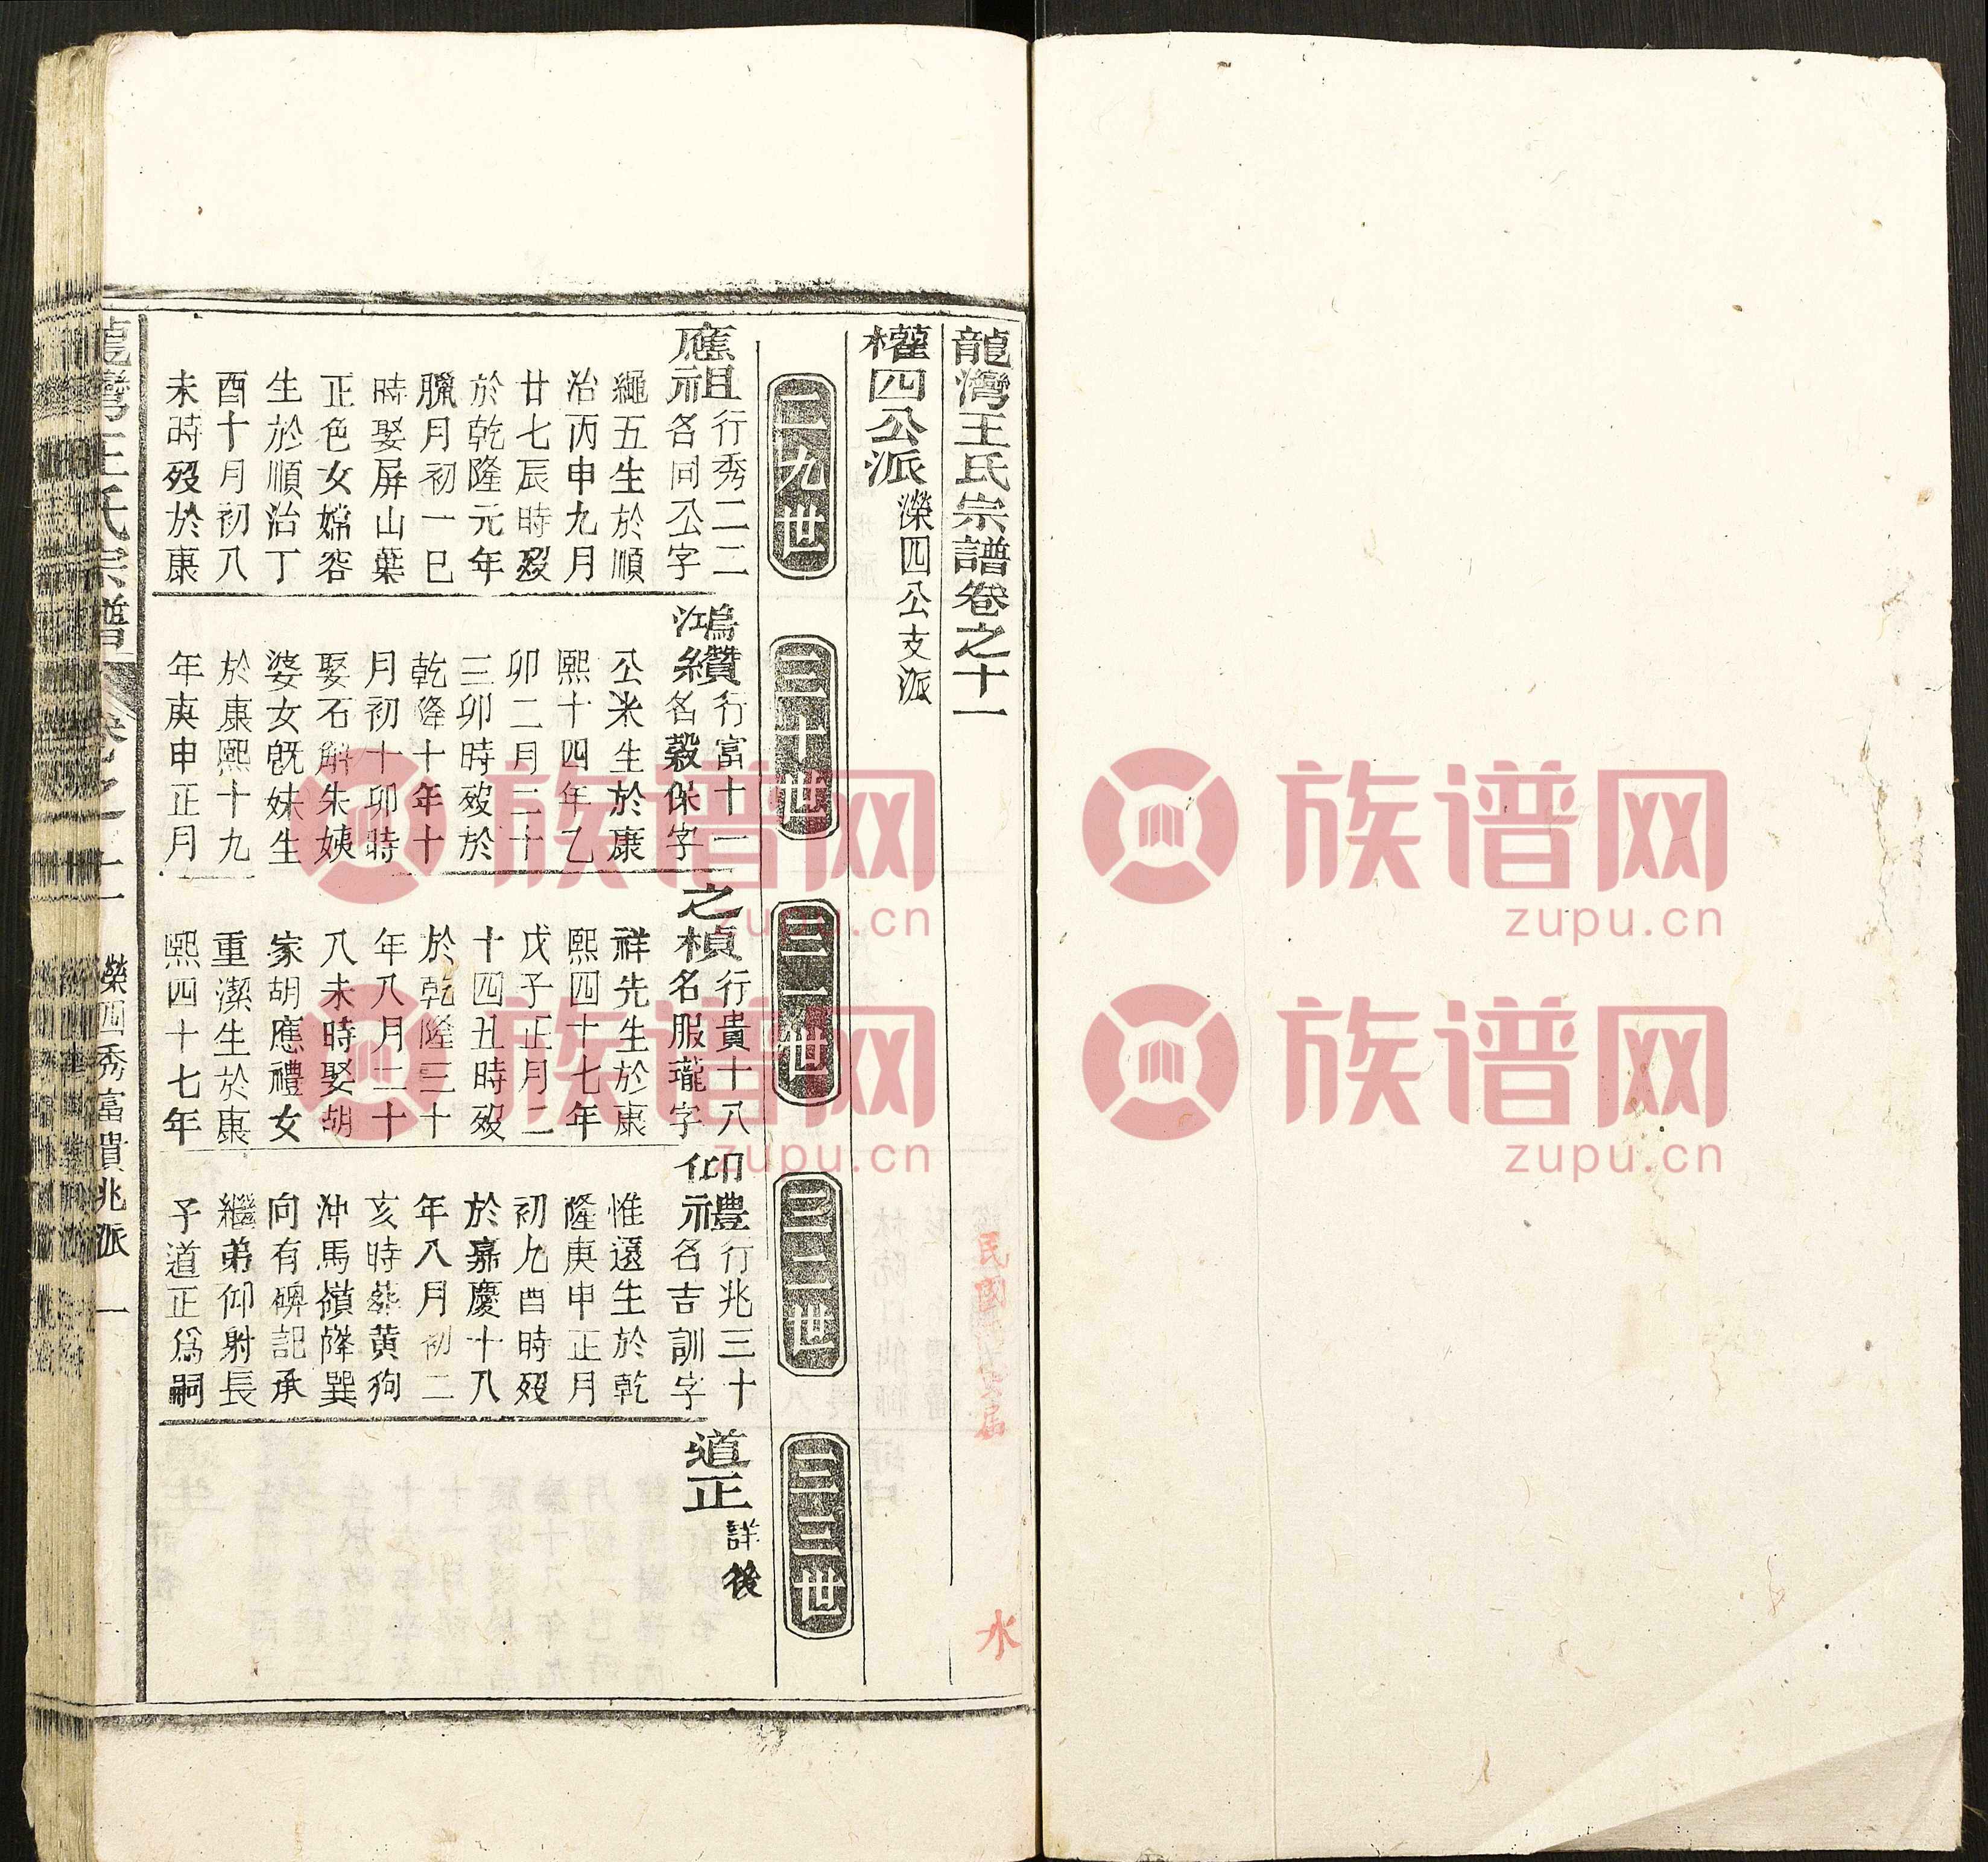 龍灣王氏宗譜卷之十一
權四公派 濚四公支派
二九世
三十世
三一世
三二世
三三世
應祖 行秀二二
名同公字
繩五生於順
治丙申九月
廿七辰時歿
於乾隆元年
臘月初一巳
時娶屏山葉
正色女嫦容
生於順治丁
酉十月初八
未時歿於康
鴻纘 行富十一
名穀保字
公米生於康
熙十四年乙
卯二月二十
三卯時歿於
乾隆十年十
月初十卯時
娶石解朱姨
婆女旣妹生
於康熙十九
年庚申正月
之楨 行貴十八
名服瓏字
祥先生於康
熙四十七年
戊子正月二
十四丑時歿
於乾隆三十
年八月二十
八未時娶胡
家胡應禮女
重潔生於康
熙四十七年
仰禮 行兆三十
名吉訓字
惟還生於乾
隆庚申正月
初九酉時歿
於嘉慶十八
年八月初二
亥時葬黃狗
沖馬嶺降巽
向有碑記承
繼弟仰射長
子道正爲嗣
道正 詳後
龍灣王氏宗譜 卷之十一 濚四秀富貴兆派 一
民國
水
族谱网
zupu.cn
族谱网
zupu.cn
族谱网
zupu.cn
族谱网
zupu.cn